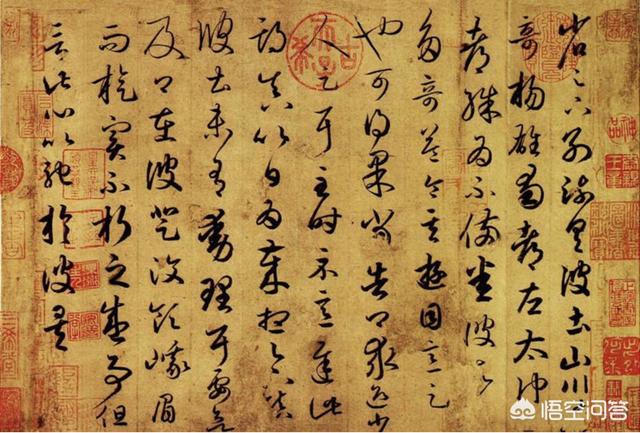 省足下別疏具彼土山川諸
奇楊雄蜀都左太沖三
都殊為不備悉彼故
多奇益令其遊目意足
也可得果當告卿求迎少
人足耳至時示意遲此
期真以日為歲想足下鎮
彼土未有動理耳要欲
及卿在彼登汶領峨眉
而旋實不朽之盛事但
言此心以馳於彼矣
悟空问答